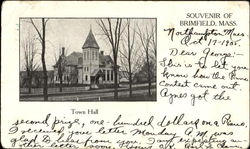 SOUVENIR OF
BRIMFIELD, MASS.
Northampton Mass
Oct 17-1905.
Dear George:-
This is to let you
know how the Piano
Contest came out
Agnes got the
Town Hall
second prize, one-hundred dollars on a Piano.
I received your letter Monday A.M. was
glad to hear from you. I am expecting an
other letter